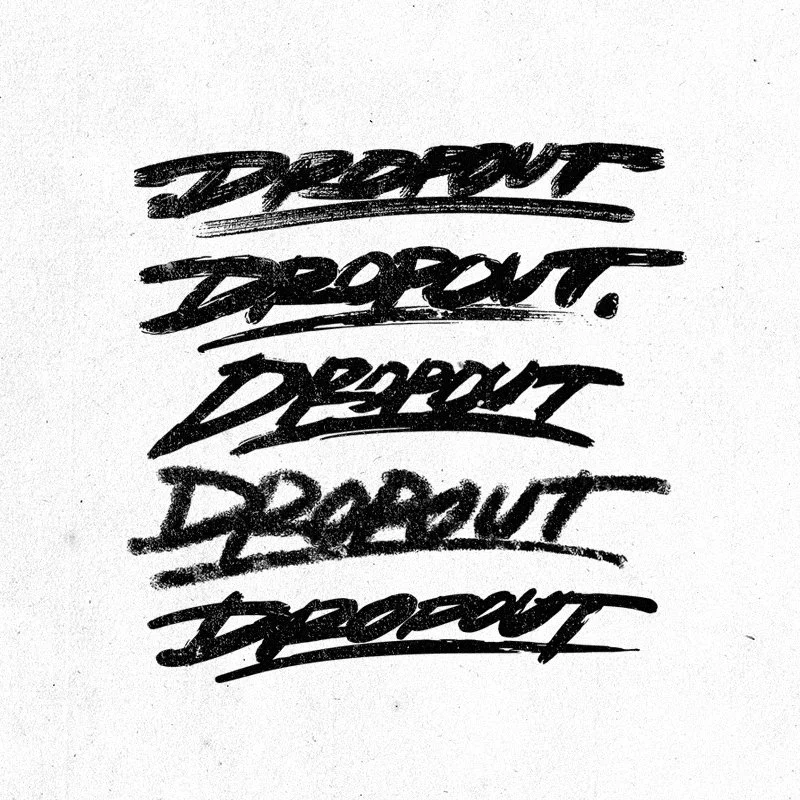 DROPOUT
DROPOUT.
DROPOUT
DROPOUT
DROPOUT